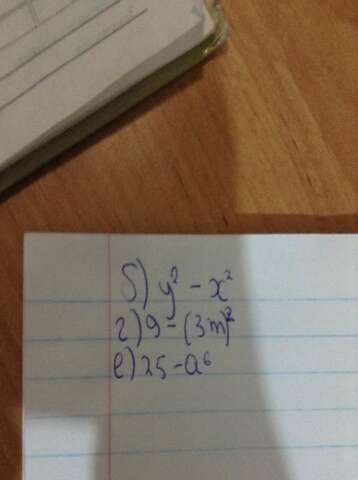 б) y² - x²
г) 9 - (3m)²
е) 25 - a⁶